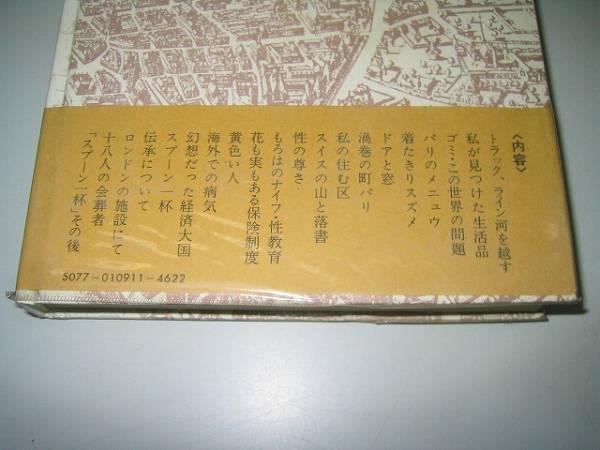 〈内容〉
トラック、ライン河を越す
私が見つけた生活品
ゴミ・この世界の問題
パリのメニュウ
着たきりスズメ
ドアと窓
渦巻の町パリ
私の住む区
スイスの山と落書
性の尊さ
もろはのナイフ・性教育
花も実もある保険制度
黄色い人
海外での病気
幻想だった経済大国
スプーン一杯
伝承について
ロンドンの施設にて
十八人の会葬者
「スプーン一杯」その後
5077-010911-4622